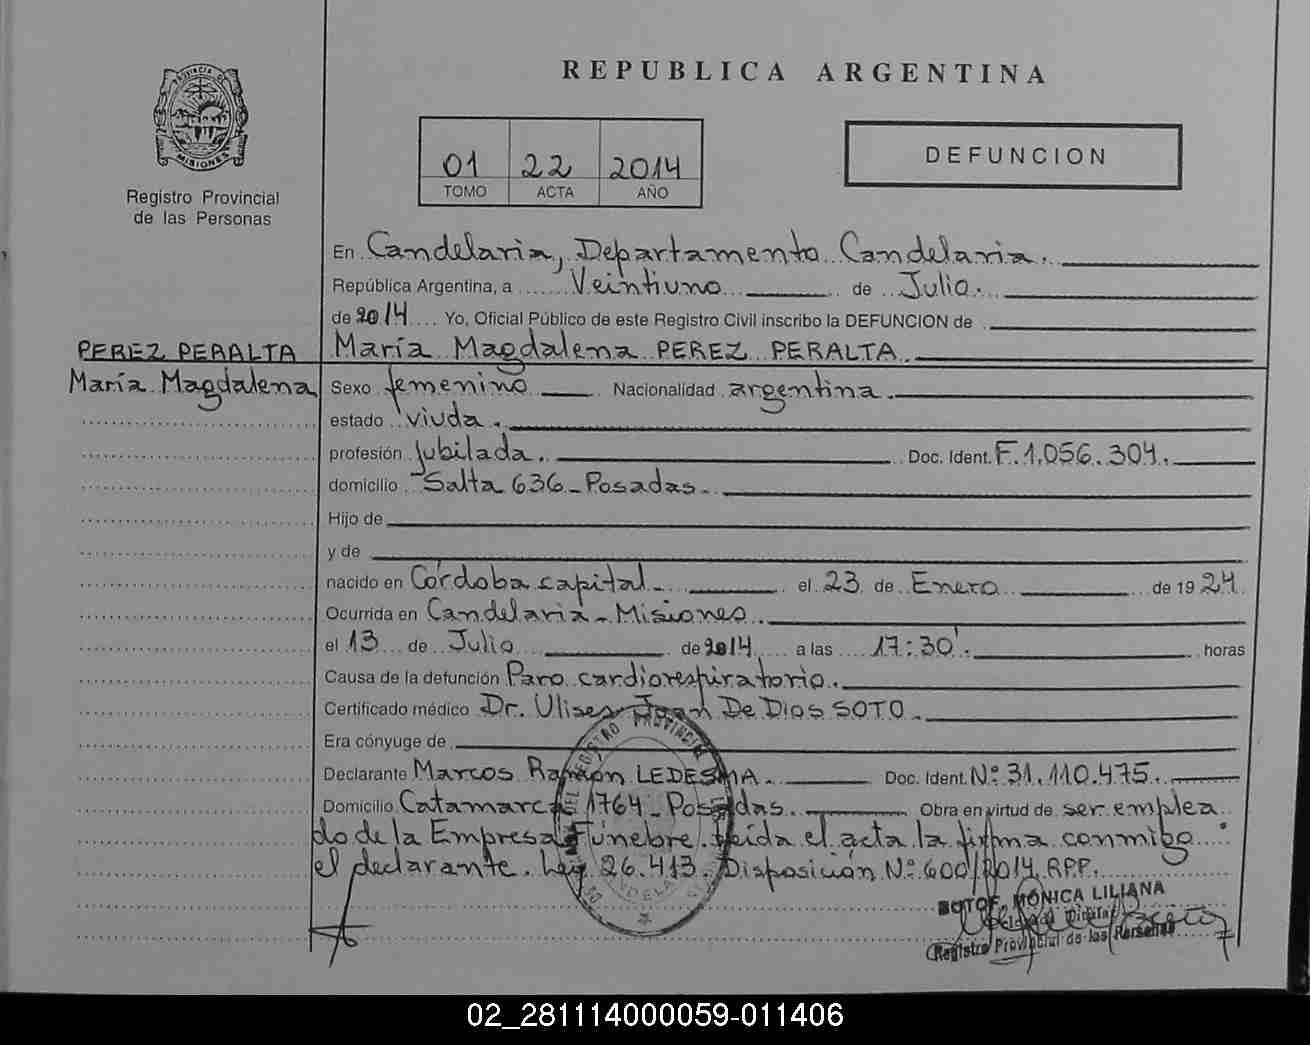 PROVINCIA DE
MISIONES
Registro Provincial
de las Personas
REPUBLICA ARGENTINA
01 22 2014
TOMO ACTA AÑO
DEFUNCION
En Candelaria, Departamento Candelaria.
República Argentina, a Veintiuno de Julio.
de 2014 Yo, Oficial Público de este Registro Civil inscribo la DEFUNCION de
PEREZ PERALTA María Magdalena PEREZ PERALTA
María Magdalena Sexo femenino Nacionalidad argentina.
estado viuda.
profesión jubilada. Doc. Ident. F.1.056.304.
domicilio Salta 636-Posadas-
Hijo de
y de
nacido en Córdoba capital- el 23 de Enero de 1924.
Ocurrida en Candelaria-Misiones
el 13 de Julio de 2014 a las 17:30'. horas
Causa de la defunción Paro cardiorespiratorio.
Certificado médico Dr. Ulises Joan De Dios SOTO.
Era cónyuge de
Declarante Marcos Ramón LEDESMA. Doc. Ident. Nº 31.110.475.
Domicilio Catamarca 1764-Posadas. Obra en virtud de ser emplea
do de la Empresa Fúnebre. Leída el acta la firma conmigo
el declarante. Ley 26.413. Disposición Nº 600/2014 RPP.
REGISTRO PROVINCIAL
BOTOF, MÓNICA LILIANA
Registro Provincial de las Personas
02_281114000059-011406